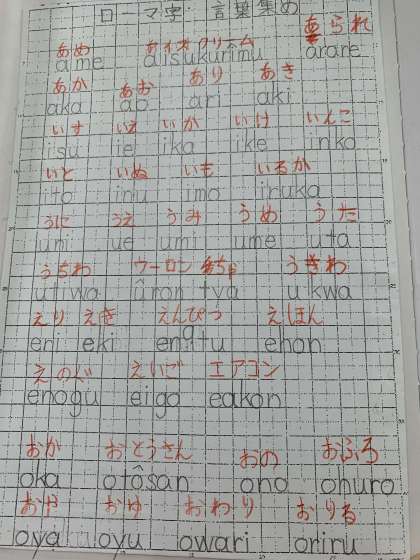 ローマ字 言葉集め
あめ あイスクリーム あられ
ame aisukurîmu arare
あか あお あり あき
aka ao ari aki
いす いえ いか いけ いんこ
isu ie ika ike inko
いと いぬ いも いるか
ito inu imo iruka
うに うえ うみ うめ うた
uni ue umi ume uta
うちわ ウーロン ちゃ うきわ
wa ûron tya ukwa
えり えき えんぴつ えほん
eri eki ehon
えのぐ えいご エアコン
enogu eigo eakon
おか おとうさん おの おふろ
oka otôsan ono ohuro
おや おゆ おわり おりる
oya oyu owari oriru